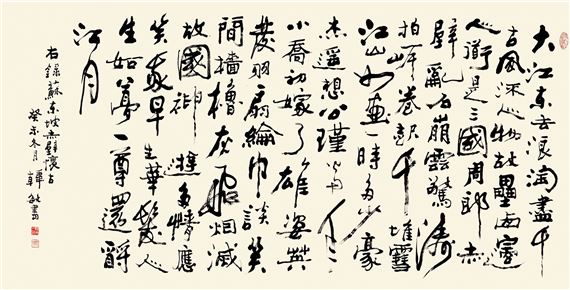 大江東去浪淘盡千
古風流人物故壘西邊
人道是三國周郎赤
壁亂石崩雲驚濤
拍岸卷起千堆雪
江山如画一時多少豪
杰遥想公瑾當年
小喬初嫁了雄姿英
發羽扇綸巾談笑
間檣櫓灰飛烟滅
故國神遊多情應
笑我早生華髮人
生如夢一尊還酹
江月
右錄蘇東坡赤壁懷古
癸未冬月 書